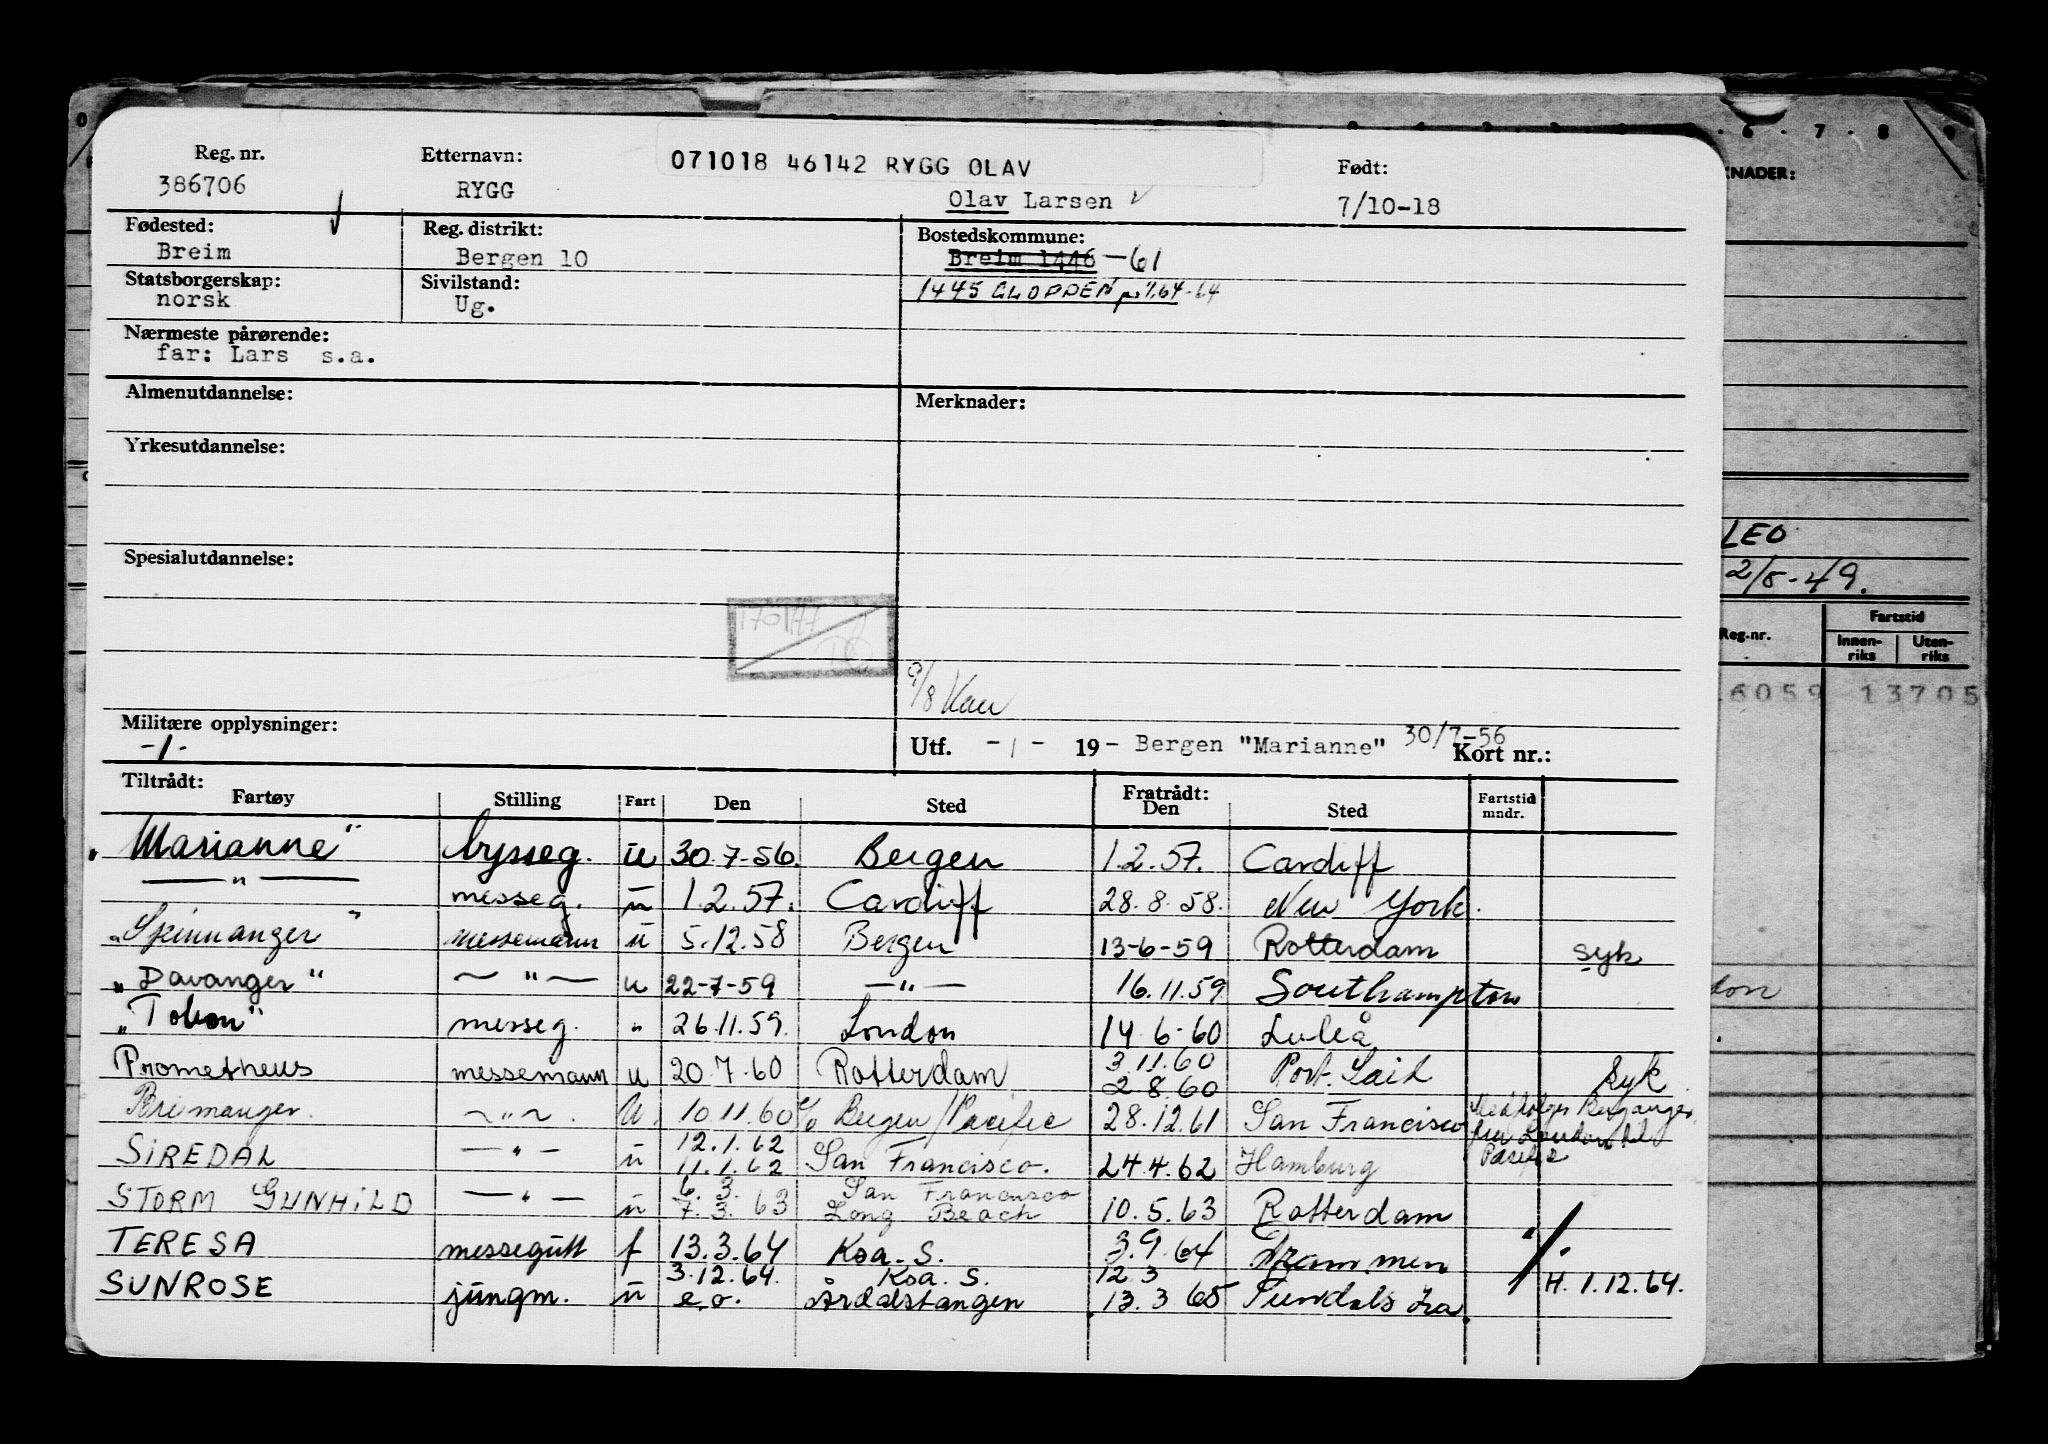 Reg. nr. Etternavn: 071018 46142 RYGG OLAV Født:
386706 RYGG Olav Larsen 7/10-18
Fødested: Reg. distrikt: Bostedskommune:
Breim Bergen 10 Breim 1446 -61
Statsborgerskap: Sivilstand: 1445 GLOPPEN pr 1/1.64-64
norsk Ug.
Nærmeste pårørende:
far: Lars s.a.
Almenutdannelse: Merknader:
Yrkesutdannelse:
Spesialutdannelse:
9/8
Militære opplysninger:
-1- Utf. -1- 19- Bergen "Marianne" 30/7-56 Kort nr.:
Tiltrådt: Fratrådt:
Fartøy Stilling Fart Den Sted Den Sted Fartstid mndr.
"Marianne" bysseg. u 30.7-56. Bergen 1.2.57. Cardiff
—"— messeg. u 1.2.57. Cardiff 28.8.58. New York.
"Spinnanger" messemann u 5.12.58 Bergen 13-6-59 Rotterdam syk
"Davanger" —"— u 22-7-59 —"— 16.11.59 Southampton
"Tolion" messeg. " 26.11.59. London 14.6-60 Luleå
Prometheus messemann u 20.7.60 Rotterdam 3.11.60 2.8.60 Port Said Syk
Brimanger. —"—. U. 10.11.60 Bergen/Pacific 28.12.61 San Francisco Medfølger Berganger fra London til Pacific
SIREDAL —"— u 12.1.62 11.1.62 San Francisco. 24.4.62 Hamburg
STORM GUNHILD —"— u 6.3. 7.3.63 San Francisco Long Beach 10.5.63 Rotterdam
TERESA messegutt f 13.3.64 Ksa. S. 3.9.64 Drammen
SUNROSE jungm. u 3.12.64. e.o. Ksa. S. Årdalstangen 12.3 13.3 65 Sundalsøra H. 1.12.64.
KNADER:
LEO
2/8-49.
Reg-nr. Fartstid
Innen-riks Uten-riks
6059 13705